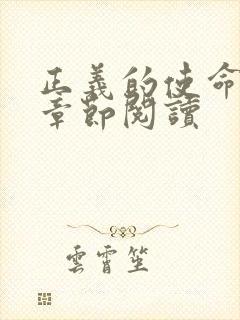 正義的使命
章節閱讀
雲霄笙